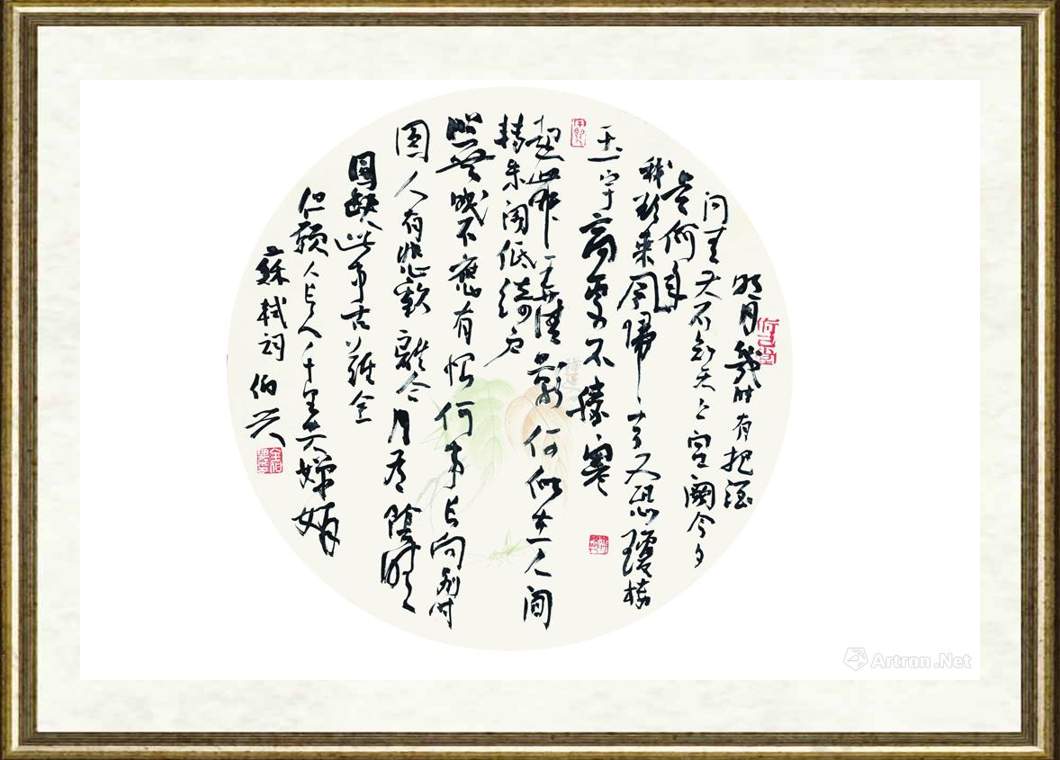 明月幾时有把酒
问青天不知天上宫阙今夕
是何年
我欲乘風歸去又恐瓊楼
玉宇高處不勝寒
起舞弄清影何似在人间
转朱阁低绮户
照無眠不應有恨何事长向别时
圆人有悲歡離合月有陰晴
圓缺此事古難全
但願人长久千里共嬋娟
蘇軾词 伯兴
Artron.Net